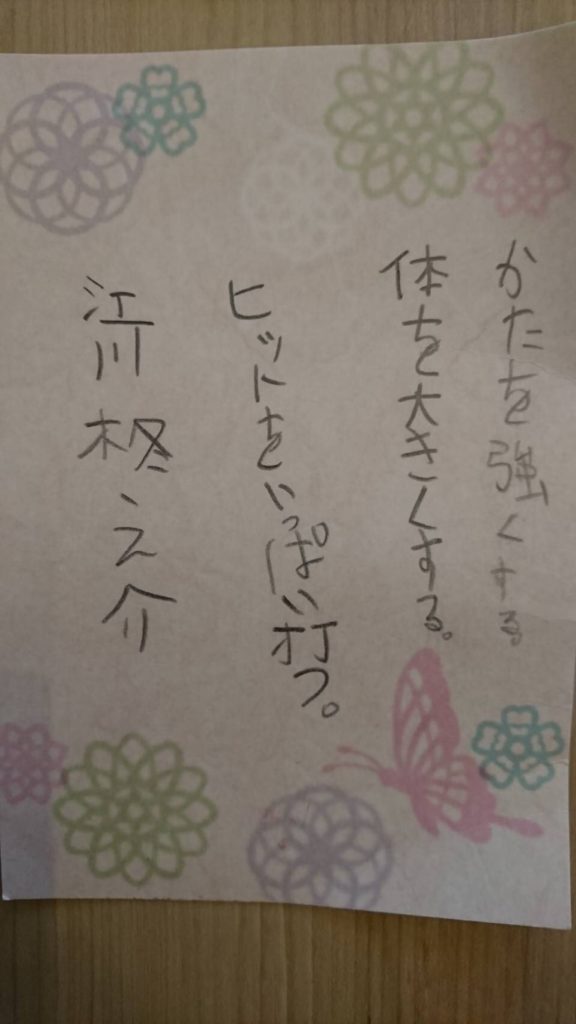 かたを強くする
体を大きくする。
ヒットをいっぱい打つ。
江川柊之介